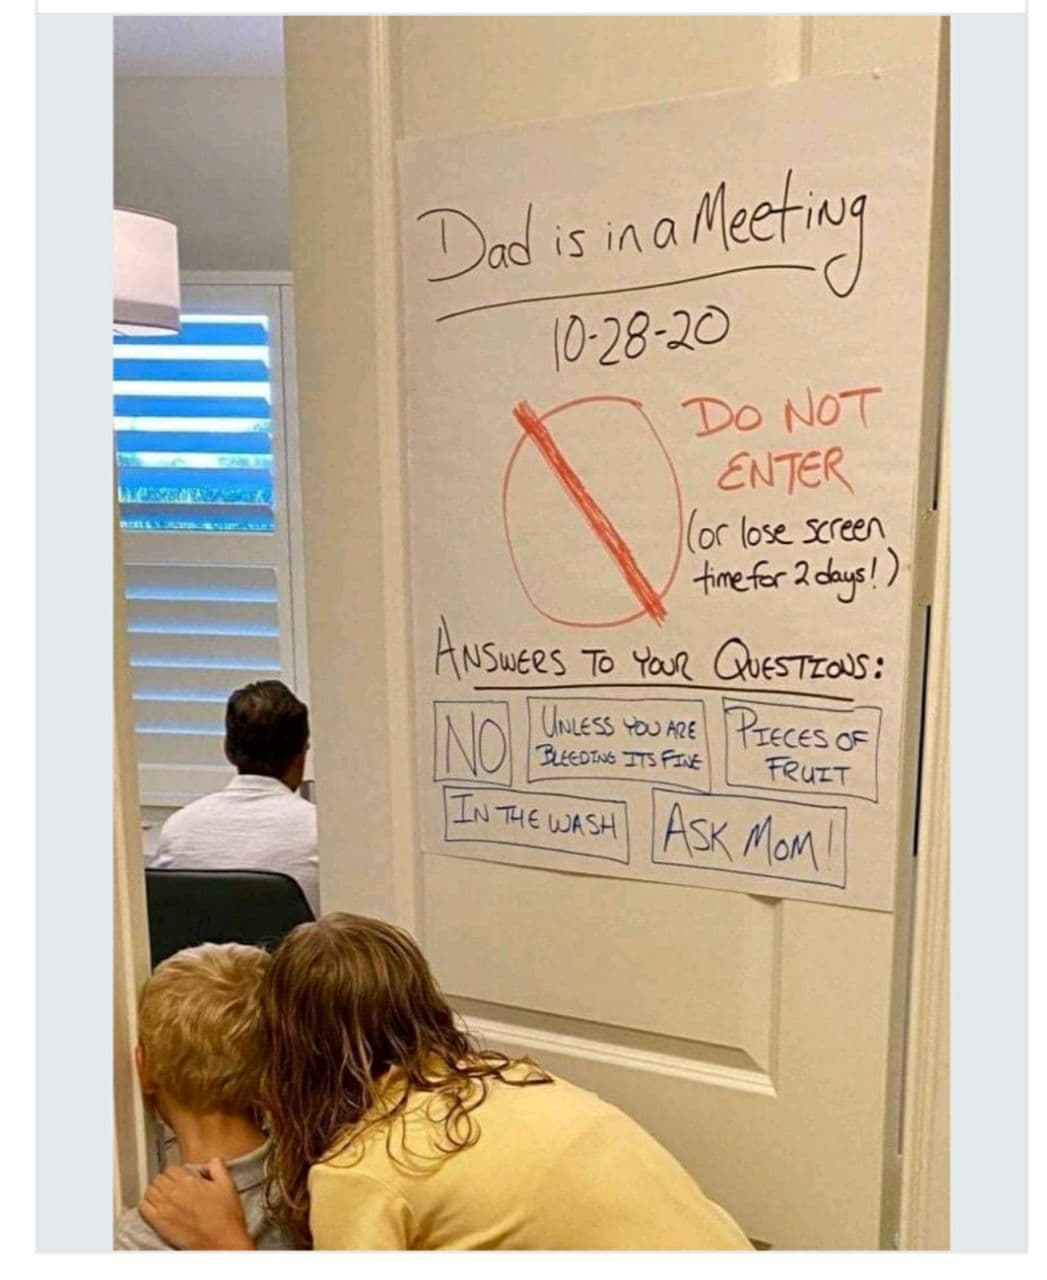 Dad is in a Meeting
10-28-20
DO NOT
ENTER
(or lose screen
time for 2 days!)
ANSWERS TO YOUR QUESTIONS:
NO
UNLESS YOU ARE
BLEEDING ITS FINE
PIECES OF
FRUIT
IN THE WASH
ASK MOM!